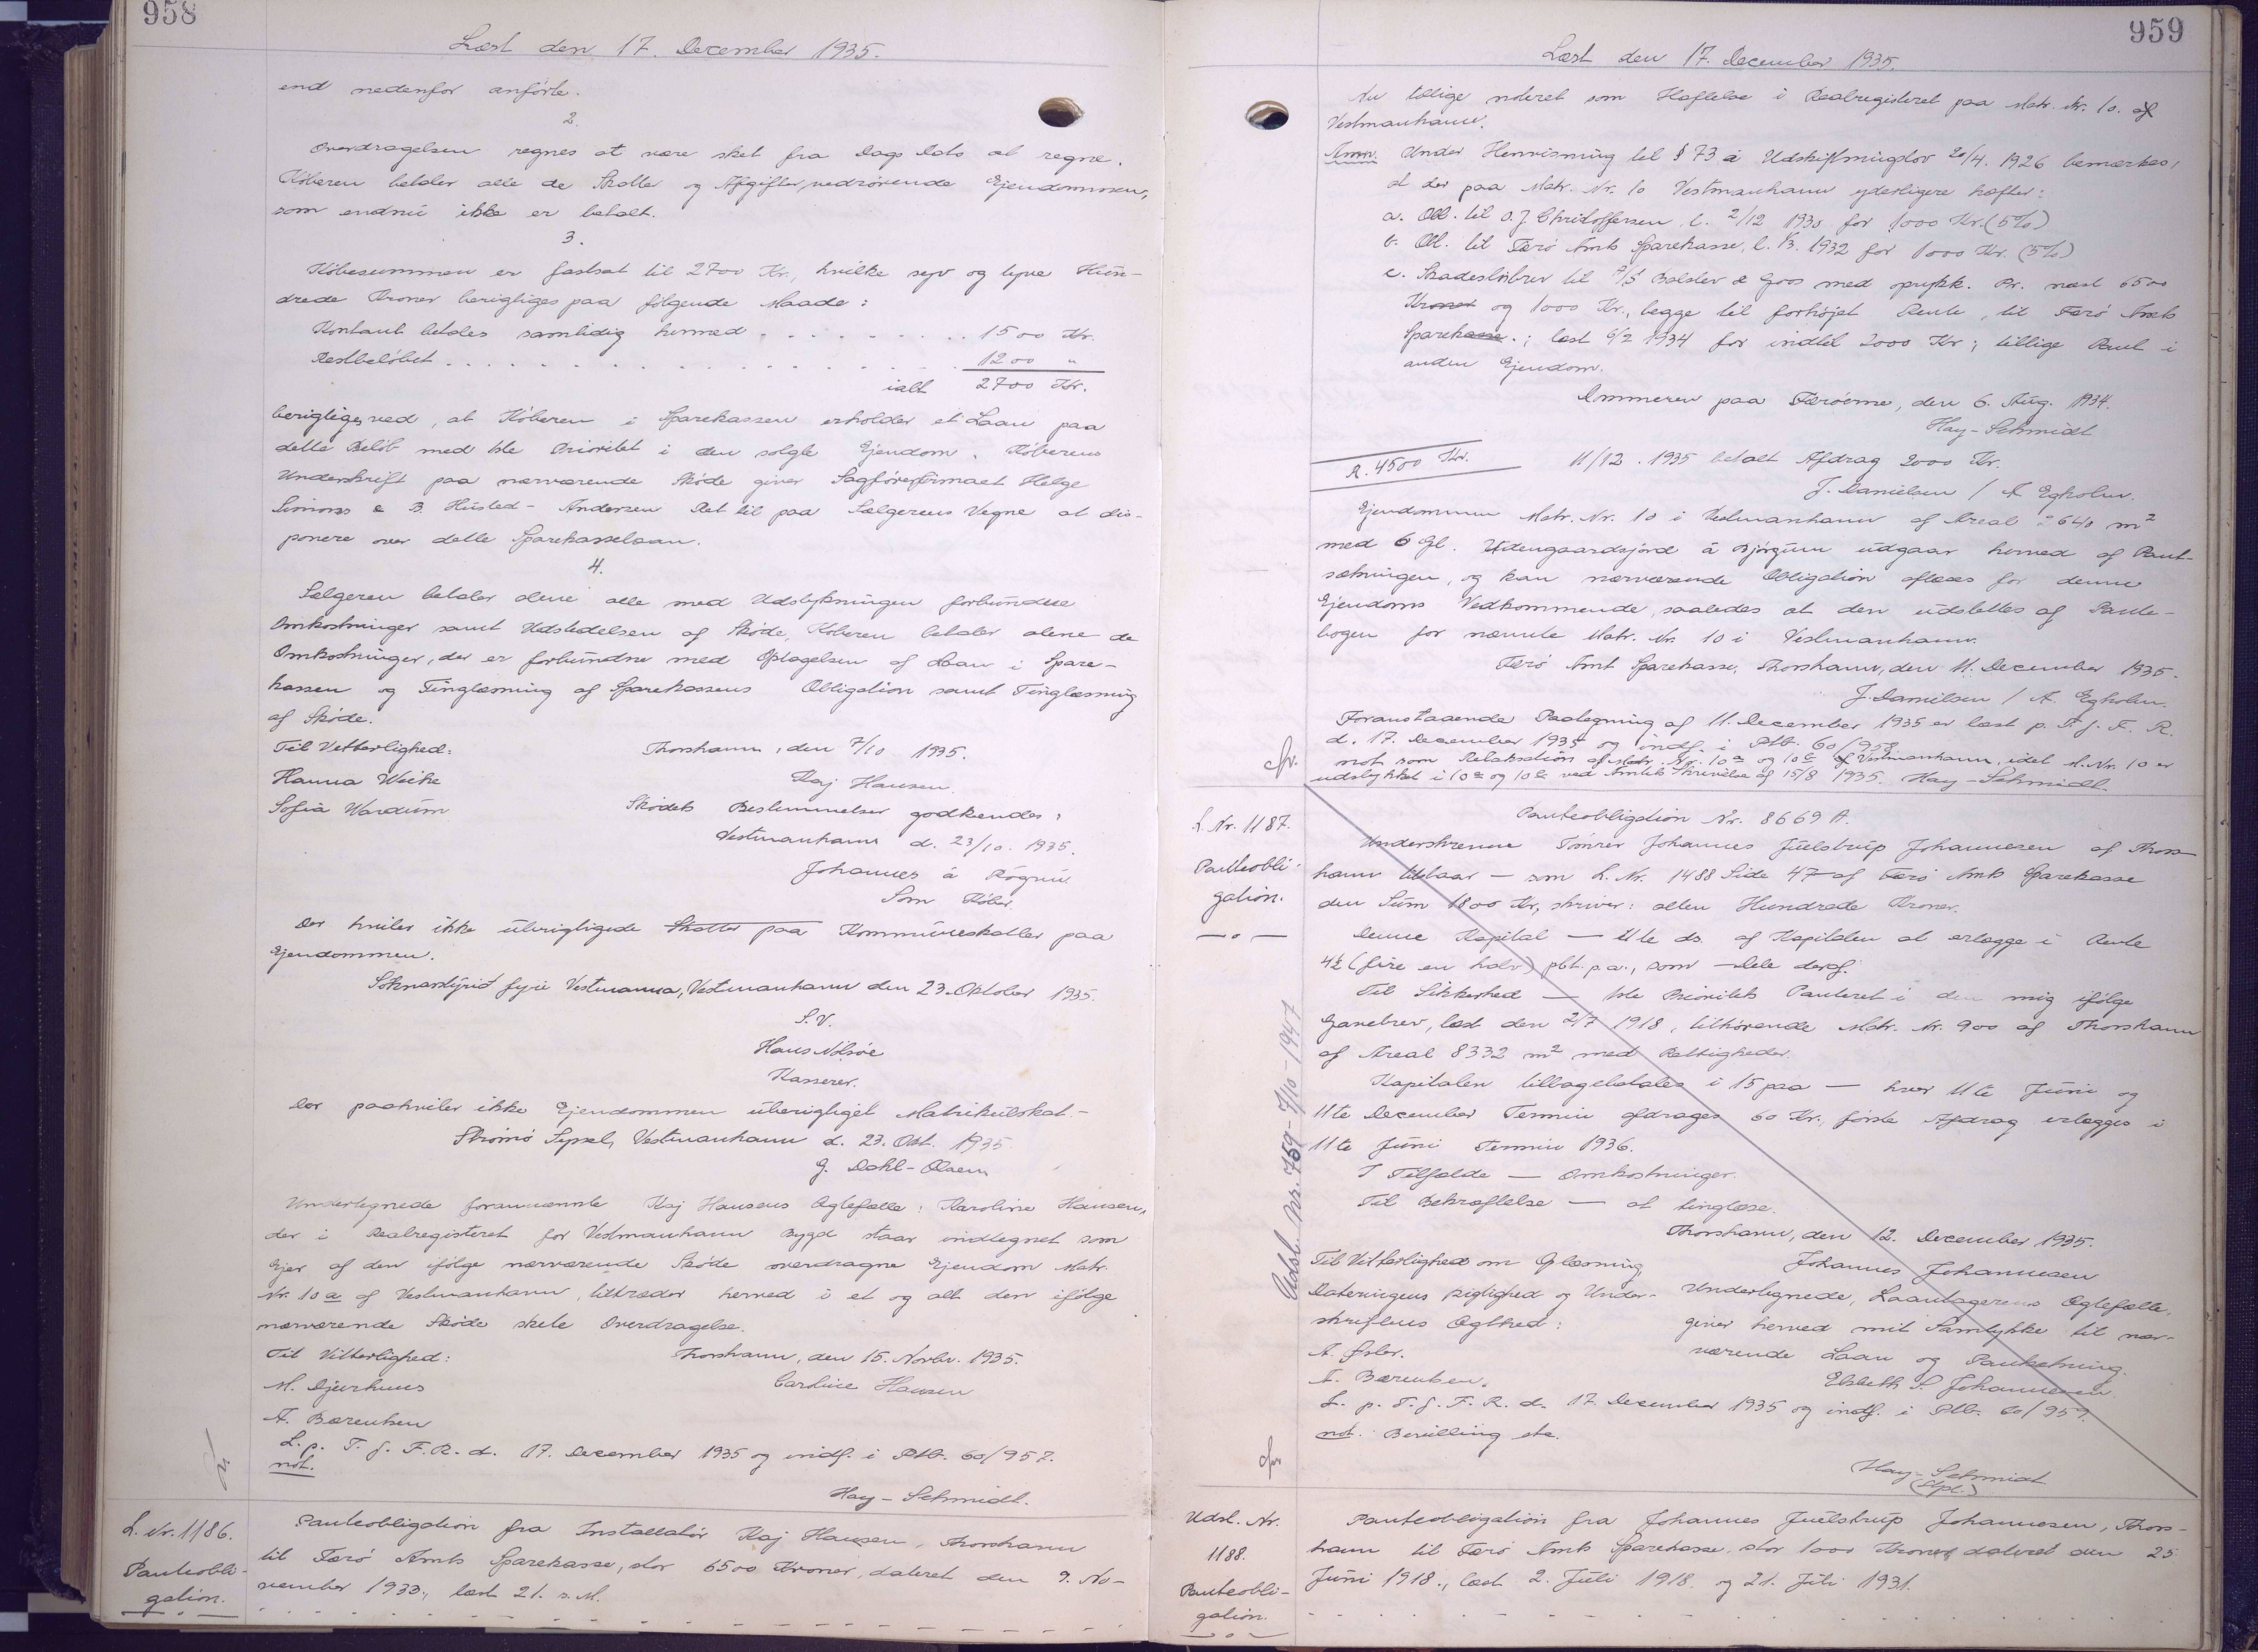 958
Læst den 17. December 1935.
end nedenfor anförte.
2.
Overdragelsen regnes at være sket fra Dags Dato at regne.
Köberen betaler alle de Skatter og Afgifter, vedrörende Ejendommen,
som endnu ikke er betalt.
3.
Köbesummen er fastsat til 2700 Kr., hvilke syv og tyve Hun-
drede Kroner berigtiges paa fölgende Maade:
Kontant betales samtidig hermed . . . . . . . . . 1500 Kr.
Restbelöbet . . . . . . . . . . . . . . . . . . 1200 "
ialt 2700 Kr.
berigtiges ved, at Köberen i Sparekassen erholder et Laan paa
dette Belöb med 1ste Prioritet i den solgte Ejendom. Köberens
Underskrift paa nærværende Sköde giver Sagförerfirmaet Helge
Simonss & B. Husted-Andersen Ret til paa Sælgerens Vegne at dis-
ponere over dette Sparekasselaan.
4.
Sælgeren betaler alene alle med Udstykningen forbundne
Omkostninger samt Udstedelsen af Sköde, Köberen betaler alene de
Omkostninger, der er forbundne med Optagelsen af Laan i Spare-
kassen og Tinglæsning af Sparekassens Obligation samt Tinglæsning
af Sköde.
Til Vitterlighed: Thorshavn, den 7/10 1935.
Hanna Weihe Kaj Hansen.
Sofia Wardum Skødets Bestemmelser godkendes,
Vestmanhavn d. 23/10. 1935.
Johannes á Rógvu
Som Köber
Der hviler ikke uberigtigede Skatter paa Kommuneskatter paa
Ejendommen.
Sóknarstýrið fyri Vestmanna, Vestmanhavn den 23. Oktober 1935.
S. V.
Hans Nolsöe
Kasserer.
Der paahviler ikke Ejendommen uberigtiget Matrikulskat.-
Strömö Syssel, Vestmanhavn d. 23. Okt. 1935
G. Dahl-Olsen
Undertegnede forannævnte Kaj Hansens Ægtefælle: Karoline Hansen,
der i Realregisteret for Vestmanhavn Bygd staar indtegnet som
Ejer af den ifölge nærværende Sköde overdragne Ejendom Matr.
Nr. 10a af Vestmanhavn, tiltræder herved i et og alt den ifölge
nærværende Sköde skete Overdragelse.
Til Vitterlighed: Thorshavn, den 15. Novbr. 1935.
M. Djurhuus Caroline Hansen
A. Bærentsen
L. p. T. f. F. R. d. 17. December 1935 og indf. i Ptb. 60/957.
not.
Hay-Schmidt.
L. Nr. 1186.
Panteobli-
gation.
Panteobligation fra Installatör Kaj Hansen, Thorshavn
til Færö Amts Sparekasse, stor 6500 Kroner, dateret den 9. No-
vember 1933., læst 21. s. M.
959
Læst den 17. December 1935.
Nu tillige noteret som Hæftelse i Realregisteret paa Matr. Nr. 10. af
Vestmanhavn.
Anm. Under Henvisning til § 73 i Udskiftningslov 20/4. 1926 bemærkes,
at der paa Matr. Nr. 10 Vestmanhavn yderligere hæfter:
a. Obl. til O. J. Christoffersen, l. 2/12 1930 for 1000 Kr. (5%)
b. Obl. til Færö Amts Sparekasse, l. 1/3. 1932 for 1000 Kr. (5%)
c. Skadeslösbrev til A/S Balslev & Goos med oprykk. Pr. næst 6500
Kroner og 1000 Kr., begge til forhöjet Rente, til Færö Amts
Sparekasse.; læst 6/2 1934 for indtil 2000 Kr.; tillige Pant i
anden Ejendom.
Dommeren paa Færöerne, den 6. Aug. 1934.
Hay-Schmidt
R. 4500 Kr. 11/12. 1935 betalt Afdrag 2000 Kr.
J. Danielsen / A Egholm.
Ejendommen Matr. Nr. 10 i Vestmanhavn af Areal 2640 m²
med 6 Gl. Udengaardsjord á Bjørgum udgaar herved af Pant-
sætningen, og kan nærværende Obligation aflæses for denne
Ejendoms Vedkommende, saaledes at den udslettes af Pante-
bogen for nævnte Matr. Nr. 10 i Vestmanhavn.
Færö Amts Sparekasse, Thorshavn, den 11. December 1935.
J. Danielsen / A. Egholm.
Foranstaaende Paategning af 11. December 1935 er læst p. T. f. F. R.
d. 17. December 1935 og indf. i Ptb. 60/958
not som Relaksation af Matr. Nr. 10a og 10c af Vestmanhavn, idet M. Nr. 10 er
udstykket i 10a og 10c ved Amtets Skrivelse af 15/8 1935. Hay-Schmidt.
L. Nr. 1187.
Panteobli-
gation.
Panteobligation Nr. 8669 A.
Underskrevne Tömrer Johannes Juelstrup Johannesen af Thors-
havn tilstaar — som L. Nr. 1488 Side 47 af Færö Amts Sparekasse
den Sum 1800 Kr., skriver: atten Hundrede Kroner.
Denne Kapital — 11te ds. af Kapitalen at erlægge i Rente
4½ (fire en halv) pCt. p. a., som — Dele deraf.
Til Sikkerhed — 1ste Prioritets Panteret i den mig ifölge
Gavebrev, læst den 2/7 1918, tilhörende Matr. Nr. 900 af Thorshavn
af Areal 8332 m² med Rettigheder.
Kapitalen tilbagebetales i 15 paa — hver 11te Juni og
11te December Termin afdrages 60 Kr., förste Afdrag erlægges i
11te Juni Termin 1936.
I Tilfælde — Omkostninger.
Til Bekræftelse — at tinglæse.
Thorshavn, den 12. December 1935.
Til Vitterlighed om Oplæsning, Johannes Johannesen
Dateringens Rigtighed og Under- Undertegnede, Laantagerens Ægtefælle,
skriftens Ægthed: giver herved mit Samtykke til nær-
værende Laan og Pantsætning.
A. Bærentsen. Elsbeth S. Johannesen.
L. p. T. f. F. R. d. 17 December 1935 og indf. i Ptb. 60/959.
not. Bevilling etc.
Hay-Schmidt
(Stpl.)
Udsl. Nr. 759 - 7/10-1947
Udsl. Nr.
1188.
Panteobli-
gation.
Panteobligation fra Johannes Juelstrup Johannesen, Thors-
havn til Færö Amts Sparekasse, stor 1000 Kroner dateret den 25
Juni 1918., læst 2. Juli 1918. og 21. Juli 1931.